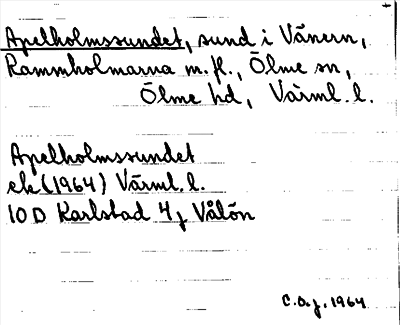 Apelholmssundet, sund i Vänern,
Rammholmarna m. fl., Ölme sn,
Ölme hd, Värml. l.
Apelholmssundet
ek (1964) Värml. l.
10 D Karlstad 4j Vålön
C.O.J. 1964